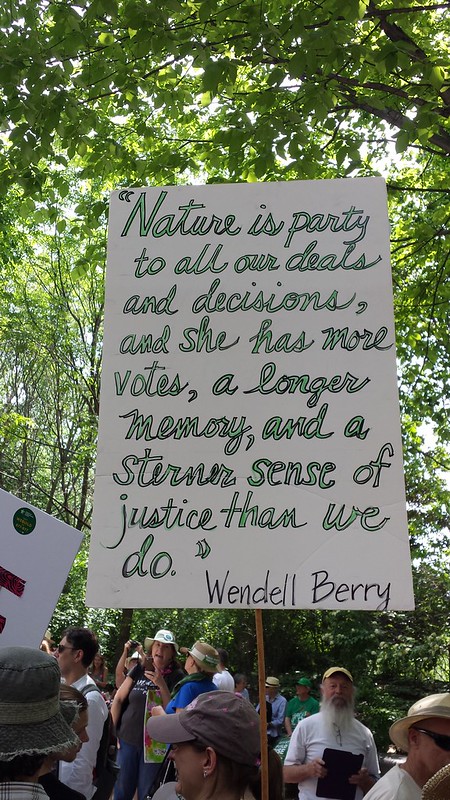 “Nature is party
to all our deals
and decisions,
and she has more
votes, a longer
memory, and a
sterner sense of
justice than we
do.”
Wendell Berry